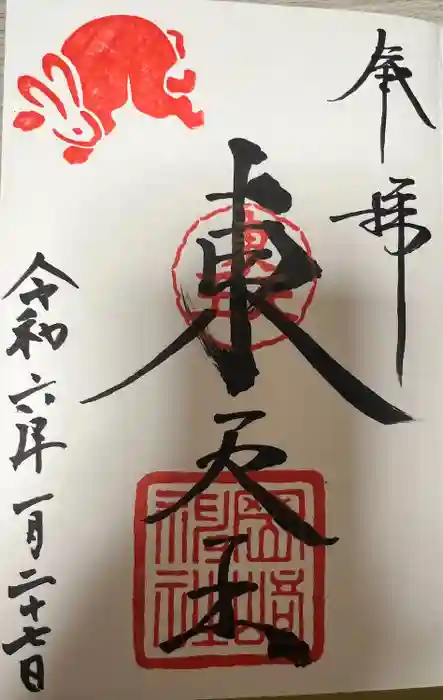 奉拝
東天王
岡崎
神社
令和六年一月二十七日